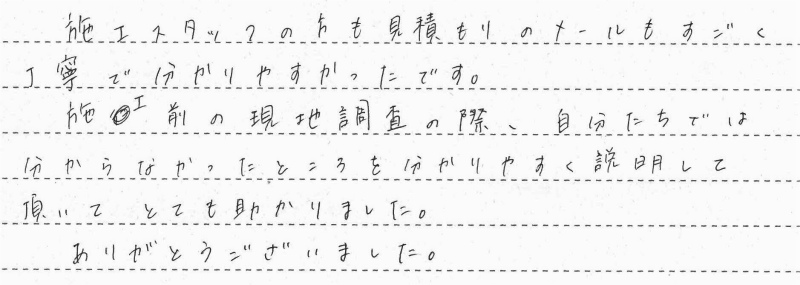 施工スタッフの方も見積もりのメールもすごく
丁寧で分かりやすかったです。
施工前の現地調査の際、自分たちでは
分からなかったところを分かりやすく説明して
頂いてとても助かりました。
ありがとうございました。